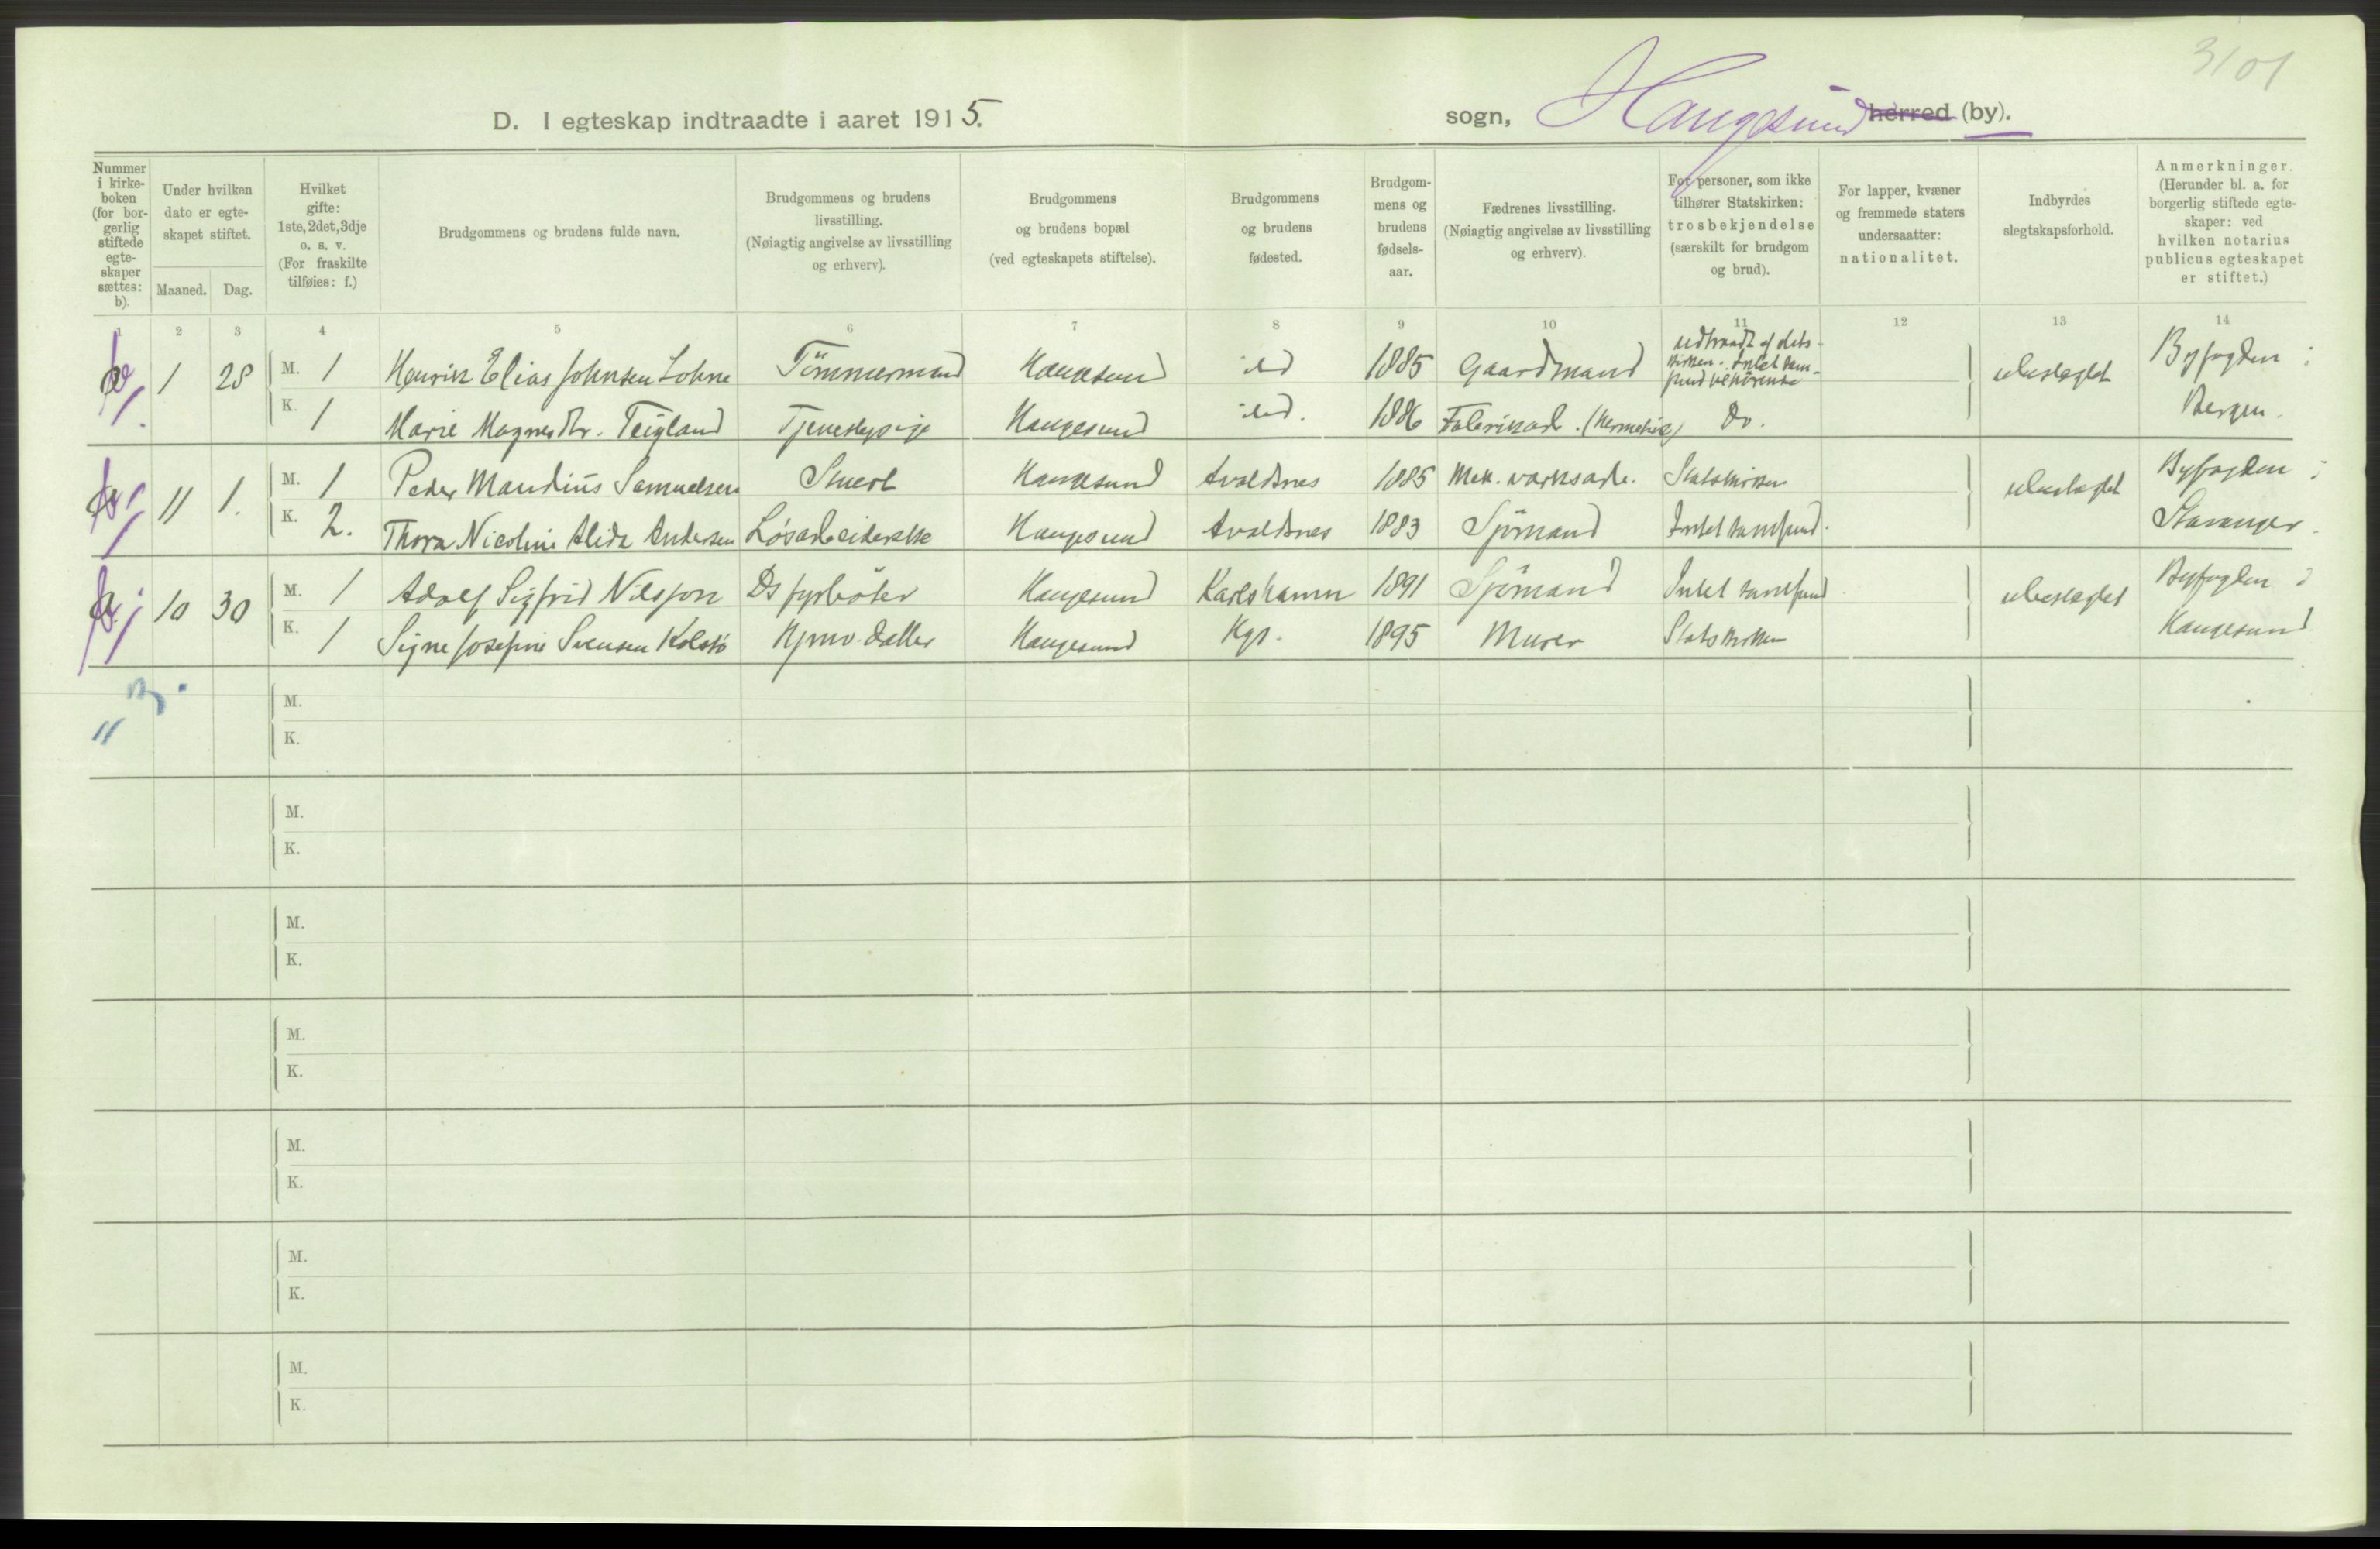 3101
D. I egteskap indtraadte i aaret 1915.
sogn, Haugesund herred (by).
Nummer i kirke-boken (for bor-gerlig stiftede egte-skaper sættes: b).
Under hvilken dato er egte-skapet stiftet.
Maaned. Dag.
Hvilket gifte: 1ste, 2det, 3dje o. s. v. (For fraskilte tilføies: f.)
Brudgommens og brudens fulde navn.
Brudgommens og brudens livsstilling. (Nøiagtig angivelse av livsstilling og erhverv).
Brudgommens og brudens bopæl (ved egteskapets stiftelse).
Brudgommens og brudens fødested.
Brudgom-mens og brudens fødsels-aar.
Fædrenes livsstilling. (Nøiagtig angivelse av livsstilling og erhverv).
For personer, som ikke tilhører Statskirken: trosbekjendelse (særskilt for brudgom og brud).
For lapper, kvæner og fremmede staters undersaatter: nationalitet.
Indbyrdes slegtskapsforhold.
Anmerkninger. (Herunder bl. a. for borgerlig stiftede egte-skaper: ved hvilken notarius publicus egteskapet er stiftet.)
1 2 3 4 5 6 7 8 9 10 11 12 13 14
1 28 M. 1 Henrik Elias Johnsen Lohne Tömmermand Haugesund 1885 Gaardmand udtraadt af stats-kirken. Intet sam-fund ubeslegtet Byfogden i
K. 1 Marie Magnesdtr. Teigland Tjenestepige Haugesund 1886 Fabrikarb. (Hermetik) Do. Bergen.
11 1. M. 1 Peder Mandius Samuelsen Stuert Haugesund Avaldsnes 1885 Mek. verksarb. Statskirken ubeslegtet Byfogden i
K. 2. Thora Nicoline Alida Andersen Løsarbeiderske Haugesund Avaldsnes 1883 Sjömand Intet samfund. Stavanger.
10 30 M. 1 Adolf Sigfrid Nilsson Ds fyrböter Haugesund Karlshamn 1891 Sjömand Intet samfund ubeslegtet Byfogden i
K. 1 Signe Josefine Svensen Kolstö Hjmv. datter Haugesund Hgs. 1895 Murer Statskirken Haugesund
M.
K.
M.
K.
M.
K.
M.
K.
M.
K.
M.
K.
M.
K.